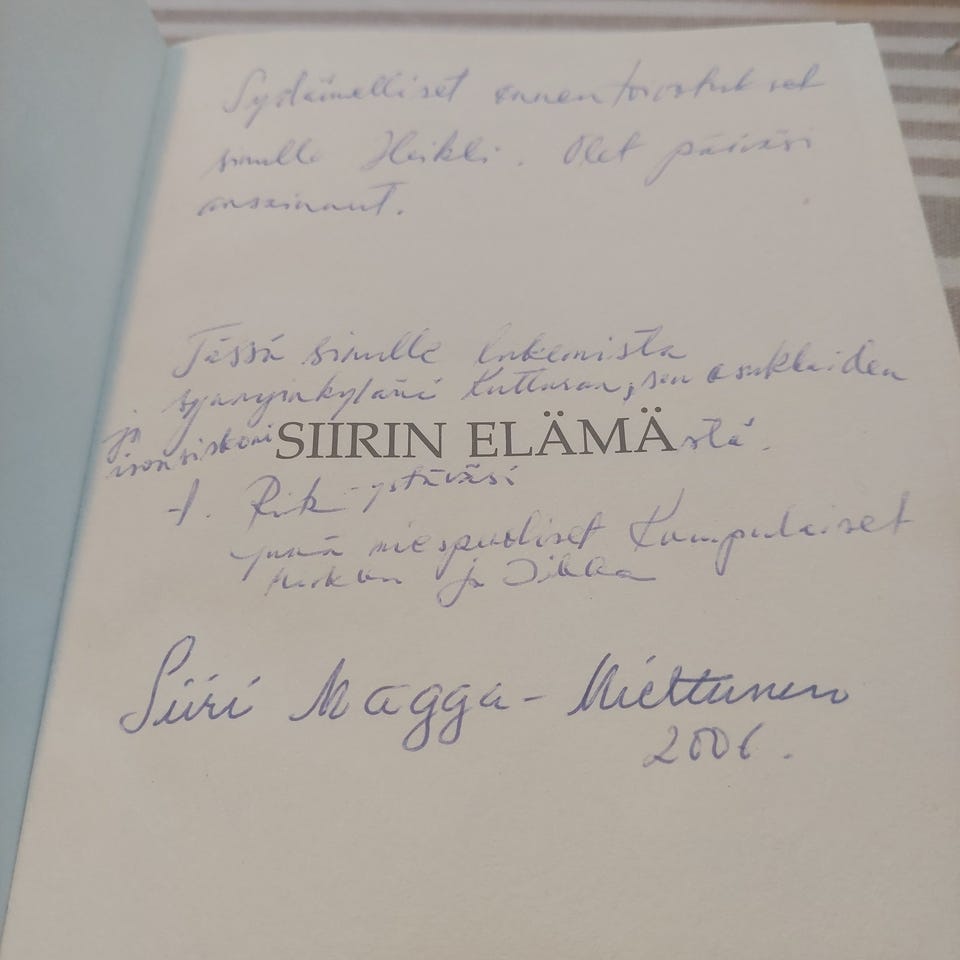 Sydämelliset onnentoivotukset
sinulle Heikki. Olet päiväsi
ansainnut.
Tässä sinulle lukemista
synnyinkyläni Kutturan, sen asukkaiden
ja
isonsiskoni SIIRIN ELÄMÄstä.
t. -ystäväsi
miespuoliset Kumpulaiset
ja
Siiri Magga-Miettunen
2006.